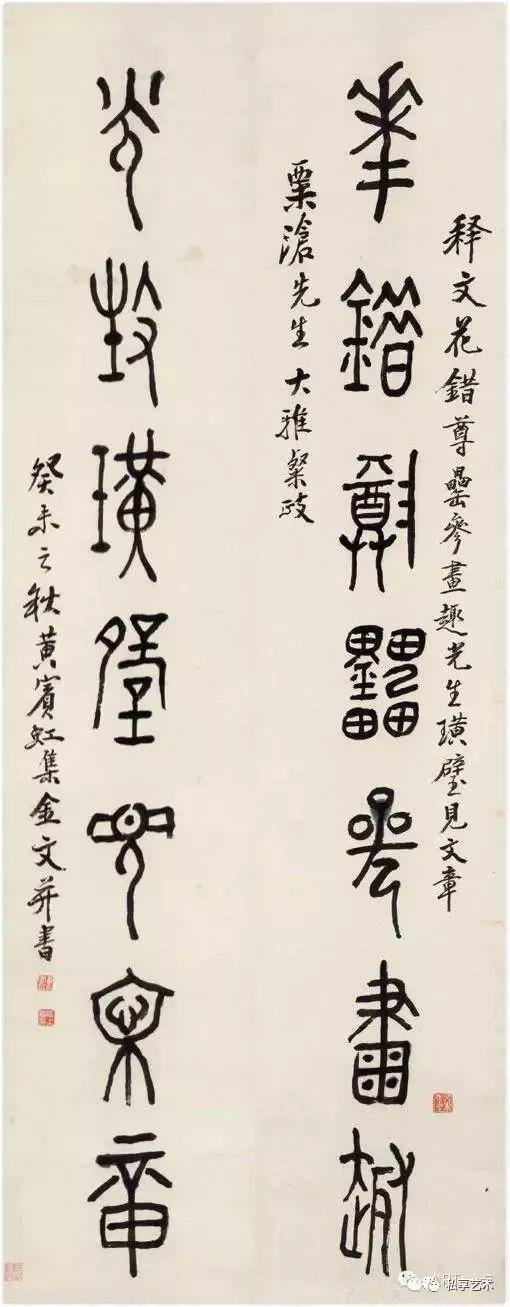 释文花錯尊罍參畫趣光生璜璧見文章
華錯尊罍參畫趣
栗滄先生大雅粲政
光生璜璧見文章
癸未之秋黃賓虹集金文并書
私享艺术